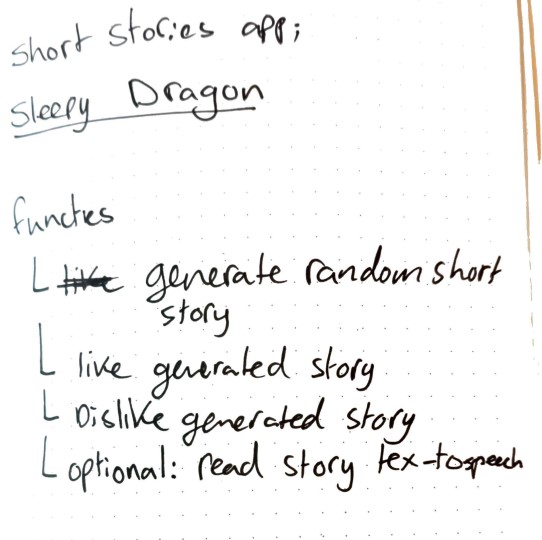 short stories app;
Sleepy Dragon
functies
generate random short
story
like generated story
Dislike generated story
optional: read story tex-to speech